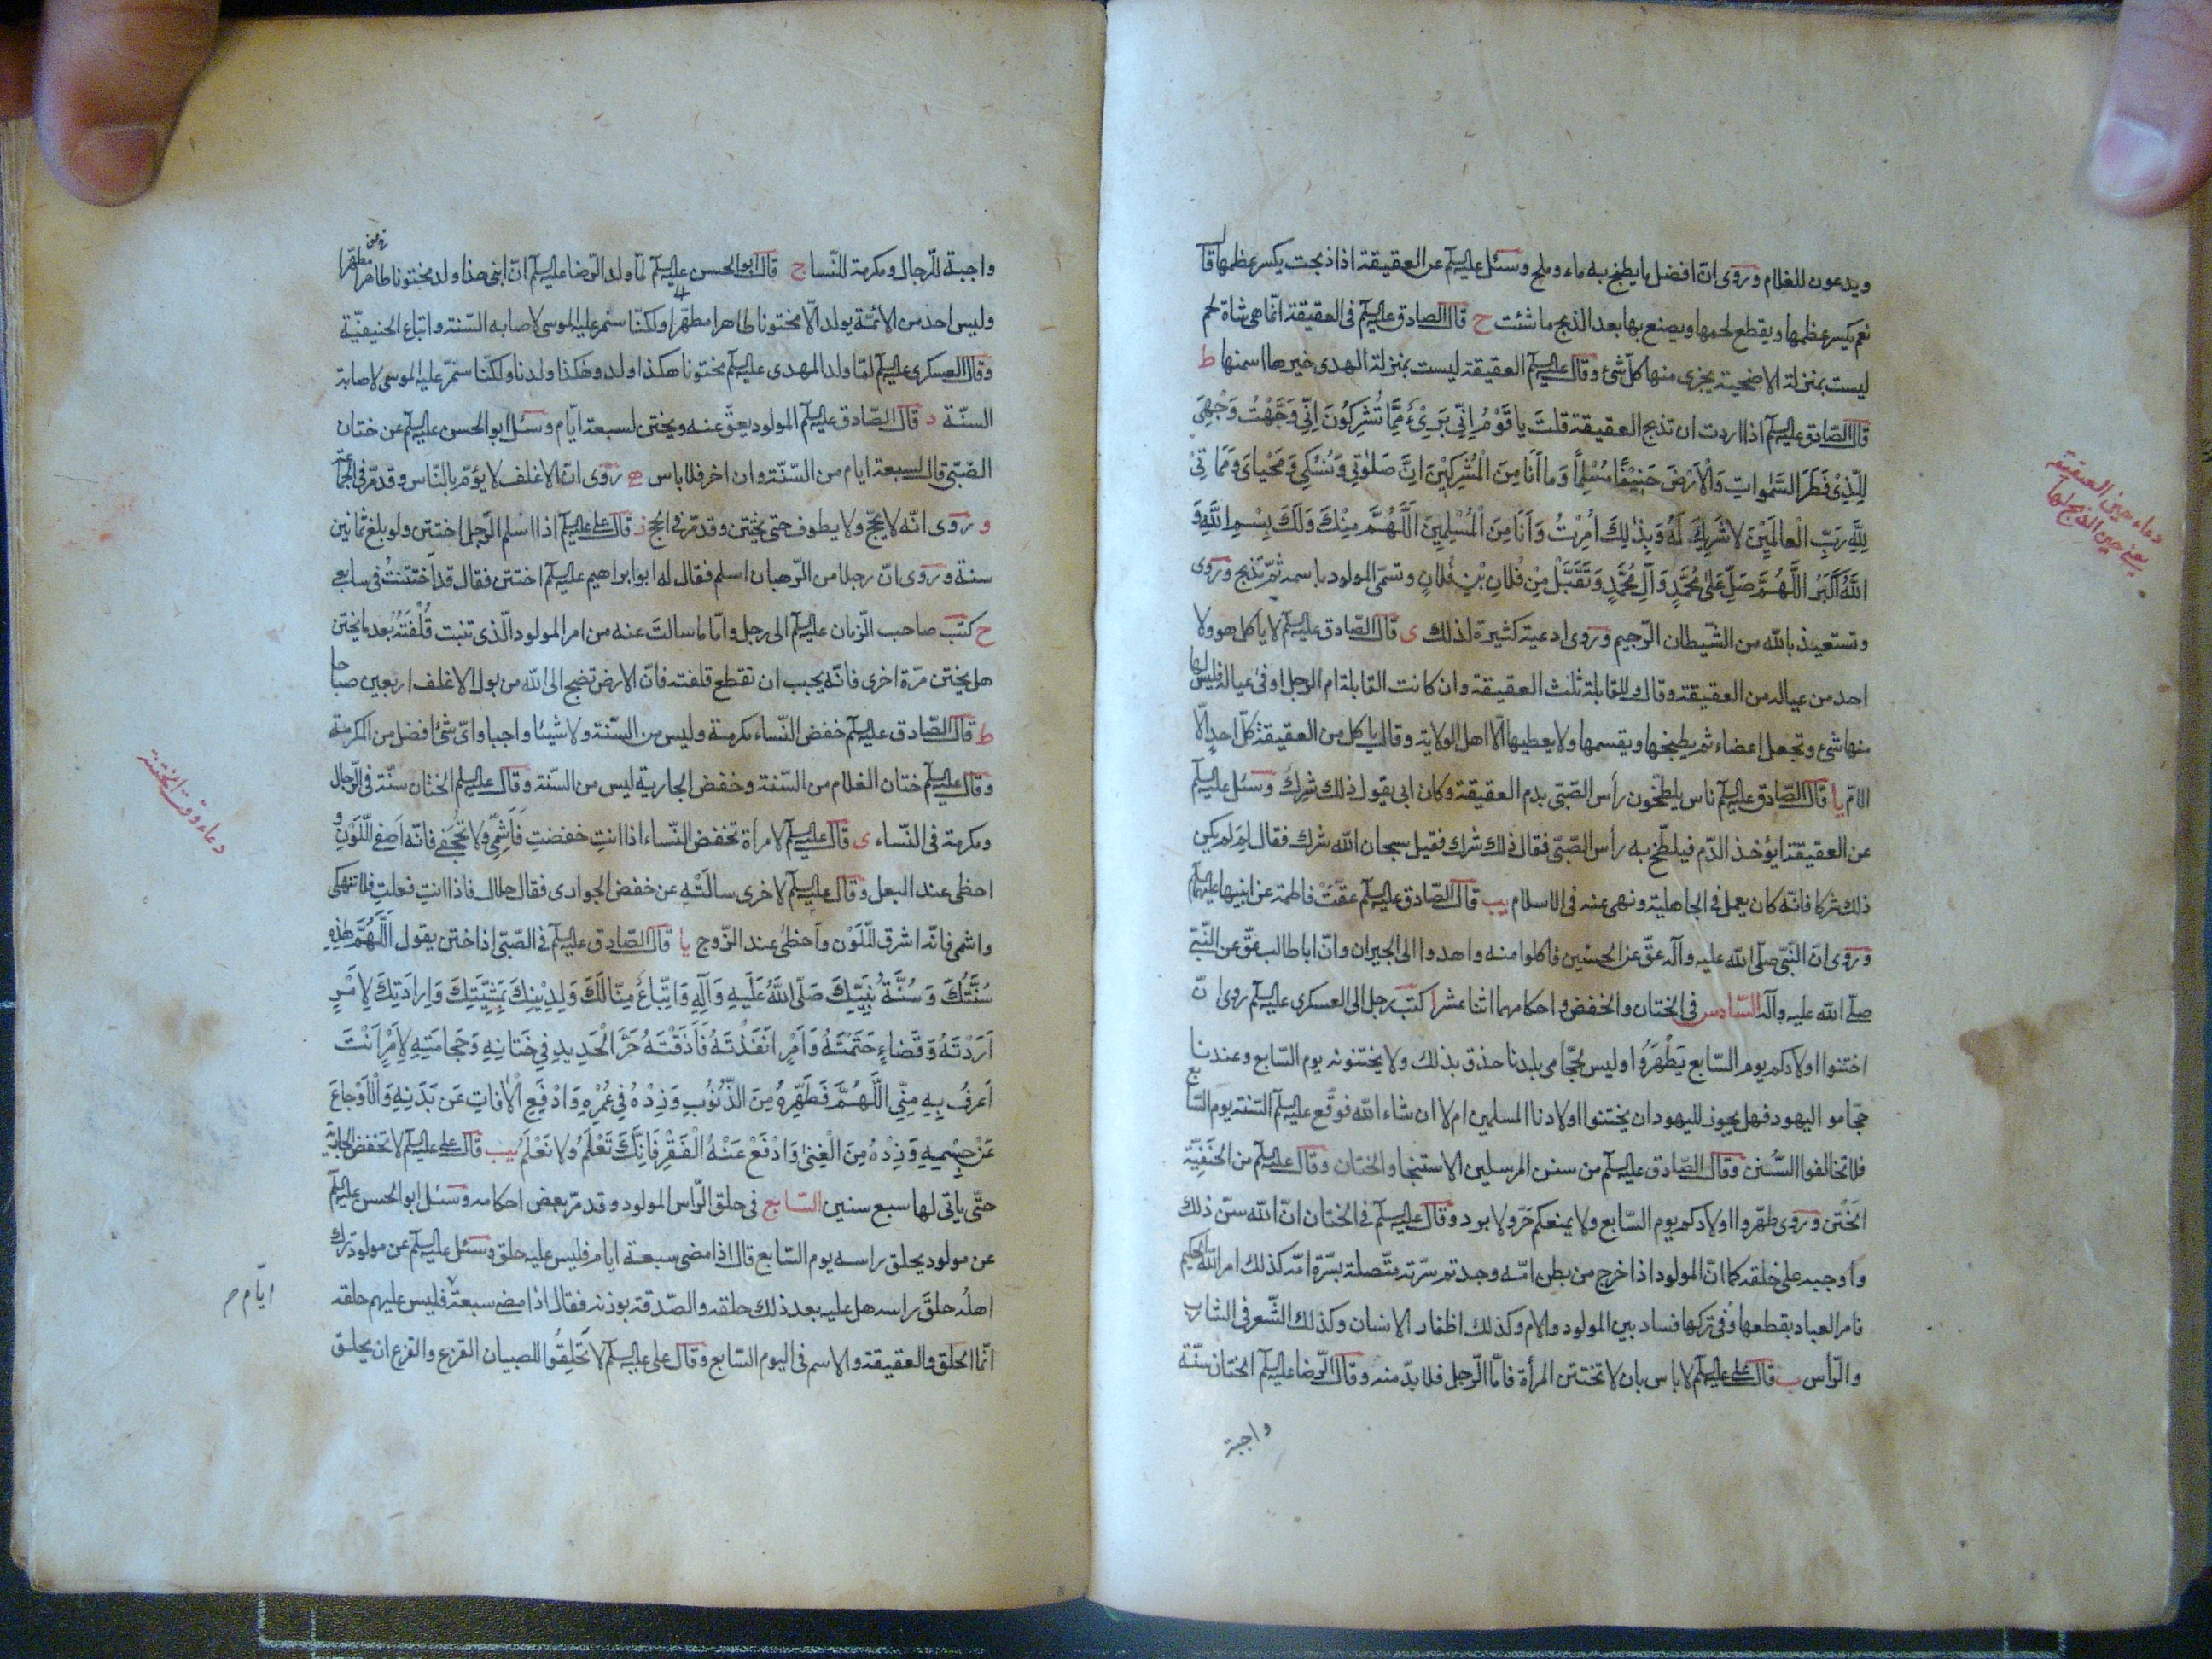 ويدعون للغلام وروى انّ افضل ما يطبخ به ماء وملح وسئل عليه السلم عن العقيقة اذا ذبحت يكسر عظمها قال
نعم يكسر عظمها ويقطع لحمها ويصنع بها بعد الذبح ما شئت ح قال الصادق عليه السلم فى العقيقة انّما هى شاة لحم
ليست بمنزلة الاضحية يجزى منها كلّ شئ وقال عليه السلم العقيقة ليست بمنزلة الهدى خيرها اسمنها ط
قال الصّادق عليه السلم اذا اردت ان تذبح العقيقة قلت يا قَوْمِ اِنّى بَرِىْءٌ مِمَّا تُشْرِكُونَ اِنّى وَجَّهْتُ وَجْهِىَ
لِلَّذِىْ فَطَرَ السَّمٰواتِ وَالْاَرْضَ حَنِيْفًا مُسْلِمًا وَما اَنَا مِنَ الْمُشْرِكِيْنَ اِنَّ صَلٰوتِى وَنُسُكِى وَمَحْياىَ وَمَمَاتِىْ
لِلّهِ رَبِّ الْعالَمِيْنَ لا شَرِيكَ لَهُ وَبِذٰلِكَ اُمِرْتُ وَاَنَا مِنَ الْمُسْلِمِينَ اَللّٰهُمَّ مِنْكَ وَلَكَ بِسْمِ اللّٰهِ وَ
اللّٰهُ اَكْبَرُ اَللّٰهُمَّ صَلِّ عَلٰى مُحَمَّدٍ وَآلِ مُحَمَّدٍ وَتَقَبَّلْ مِنْ فُلانِ بْنِ فُلانٍ وتسمّى المولود باسمه ثمّ تذبح وروى
وتستعيذ بالله من الشّيطان الرّجيم وروى ادعية كثيرة لذلك ى قال الصّادق عليه السلم لا ياكل هو ولا
احد من عياله من العقيقة وقال وللقابلة ثلث العقيقة وان كانت القابلة ام الرجل او فى عياله فليس لها
منها شئ وتجعل اعضاء ثم يطبخها ويقسمها ولا يعطيها الّا اهل الولاية وقال ياكل من العقيقة كلّ احدٍ الّا
الامّ يا قال الصّادق عليه السلم ناس يلطخون رأس الصّبىّ بدم العقيقة وكان ابى يقول ذلك شِركٌ وسئل عليه السلم
عن العقيقة ايؤخذ الدّم فيلطّخ به رأس الصّبىّ فقال ذلك شرك فقيل سبحان الله شرك فقال لِمَ لم يكن
ذلك شركا فانّه كان يعمل فى الجاهلية ونهى عنه فى الاسلام يب قال الصّادق عليه السلم عقّتْ فاطمة عن ابنيها عليهم السلم
وروى انّ النّبىّ صلّى الله عليه وآله عقّ عن الحسنين فاكلوا منه واهدوا الى الجيران وانّ ابا طالب عقّ عن النّبىّ
صلّى الله عليه وآله السّادس فى الختان والخفض واحكامهما اثنا عشر ا كتب رجل الى العسكرى عليه السلم روى انّ
اختنوا اولادكم يوم السّابع يَطْهَرُوا وليس لحجّامى بلدنا حذق بذلك ولا يختنونه يوم السّابع وعندنا
حجّامو اليهود فهل يجوز لليهود ان يختنوا اولادنا المسلمين ام لا ان شاء الله فوقّع عليه السلم السّنة يوم السّابع
فلا تخالفوا السُّنن وقال الصّادق عليه السلم من سنن المرسلين الاستنجا والختان وقال عليه السلم من الحَنَفِيّة
الختْن وروى طهّروا اولادكم يوم السّابع ولا يمنعكم حَرّ ولا برد وقال عليه السلم فى الختان انّ الله سنّ ذلك
واوجبه على خلقه كما انّ المولود اذا خرج من بطن امّه وجدتم سرّته متّصلة بسرّة امّه كذلك امر الله الحكيم
فامر العباد بقطعها وفى تركها فساد بين المولود والام وكذلك اظفار الانسان وكذلك الشّعر فى الشارب
والرّأس ب قال على عليه السلم لا باس بان لا تختتن المرأة فامّا الرّجل فلا بدّ منه وقال الرّضا عليه السلم الختان سنّة
واجبة
دعاء حين العقيقة
يعنى حين الذبح لها
واجبة للّرجال ومكرمة للنّسا ج قال ابو الحسن عليه السلم لمّا ولد الرّضا عليه السلم انّ ابنى هذا ولد مختونا طاهرا مطهّرا
وليس احد من الائمّة يولد الّا مختونا طاهرا مطهّرا ولكنّا سنمر عليه الموسى لاصابه السّنة واتباع الحنيفيّة
وقال العسكرى عليه السلم لمّا ولد المهدى عليه السلم مختونا هكذا ولد وهكذا ولدنا ولكنّا سنمّر عليه الموسى لاصابة
السنّة د قال الصّادق عليه السلم المولود يعقّ عنه ويختن لسبعة ايّام وسئل ابو الحسن عليه السلم عن ختان
الصّبّى قال لسبعة ايام من السّنّة وان اخر فلا باس ه روى انّ الاغلف لا يؤمّ بالنّاس وقد مرّ فى الجماعة
و روى انّه لا يحجّ ولا يطوف حتى يختتن وقد مرّ فى الحج ز قال على عليه السلم اذا اسلم الرّجل اختتن ولو بلغ ثمانين
سنة وروى انّ رجلا من الرّهبان اسلم فقال له ابو ابراهيم عليه السلم اختتن فقال قد اختتنتُ فى سابعى
ح كتب صاحب الزمان عليه السلم الى رجل وامّا ما سالتَ عنه من امر المولود الّذى تنبت قُلْفَتُه بعد ما يختن
هل يختن مرّة اخرى فانّه يجب ان تقطع قلفته فانّ الارض تضج الى الله من بول الاغلف اربعين صباحا
ط قال الصّادق عليه السلم خفض النّساء مكرمة وليس من السّنّة ولا شيئا واجبا واىّ شئ افضل من المكرمة
وقال عليه السلم ختان الغلام من السّنة وخفض الجارية ليس من السّنة وقال عليه السلم الختان سنّة فى الرّجال
ومكرمة فى النّساء ى قال عليه السلم لامرأة تخفض النّساء اذا انتِ خفضتِ فَاَشِمِّى ولا تُجْحِفى فانّه اَصفى للّوْنِ و
احظى عند البعل وقال عليه السلم لاخرى سالَتْهِ عن خفض الجوارى فقال حلال فاذا انتِ فعلتِ فلا تنهكى
واشمى فانّه اشرق للّوْن وأحظى عند الزّوج يا قال الصّادق عليه السلم فى الصّبّى اذا ختن يقول اَللّٰهُمَّ هٰذِهِ
سُنَّتُكَ وَسُنَّةُ نَبِيِّكَ صَلّى اللهُ عَلَيهِ وَآلِهِ وَاتِّباعٌ مِنّا لَكَ وَلِدِيْنِكَ بِمَشِيَّتِكَ وَاِرادَتِكَ لِاَمْرٍ
اَرَدْتَهُ وَقَضاءٍ حَتَمْتَهُ وَاَمْرٍ اَنْفَذْتَهُ فَاَذَقْتَهُ حَرَّ الْحَدِيدِ فِى خَتَانِهِ وَحَجامَتِهِ لِاَمْرٍ اَنْتَ
اَعرَفُ بِهِ مِنِّى اَللّٰهُمَّ فَطَهِّرهُ مِنَ الذُّنُوبِ وَزِدْهُ فِى عُمْرِهِ وَادْفَعِ الْاٰفاتِ عَن بَدَنِهِ وَالْاَوْجاعَ
عَنْ جِسْمِهِ وَزِدْهُ مِنَ الْغِنى وَادْفَعْ عَنْهُ الْفَقْرَ فَاِنَّكَ تَعْلَمُ ولا نَعْلَمُ يب قال على عليه السلم لا تخفض الجارية
حتّى ياتى لها سبع سنين السّابع فى حلق الرّاس المولود وقد مرّ بعض احكامه وسئل ابو الحسن عليه السلم
عن مولود يحلق راسه يوم السّابع قال اذا مضى سبعة ايام فليس عليه حلق وسئل عليه السلم عن مولود ترك
اهلُه حلقَ راسه هل عليه بعد ذلك حلقه والصّدقة بوزنه فقال اذا مضى سبعة فليس عليهم حلقه
انّما الحلق والعقيقة والاسم فى اليوم السّابع وقال على عليه السلم لا تَحْلِقُوا للصبيان القزع والقزع ان يحلق
دعاء وقت الختنة
ايّام م